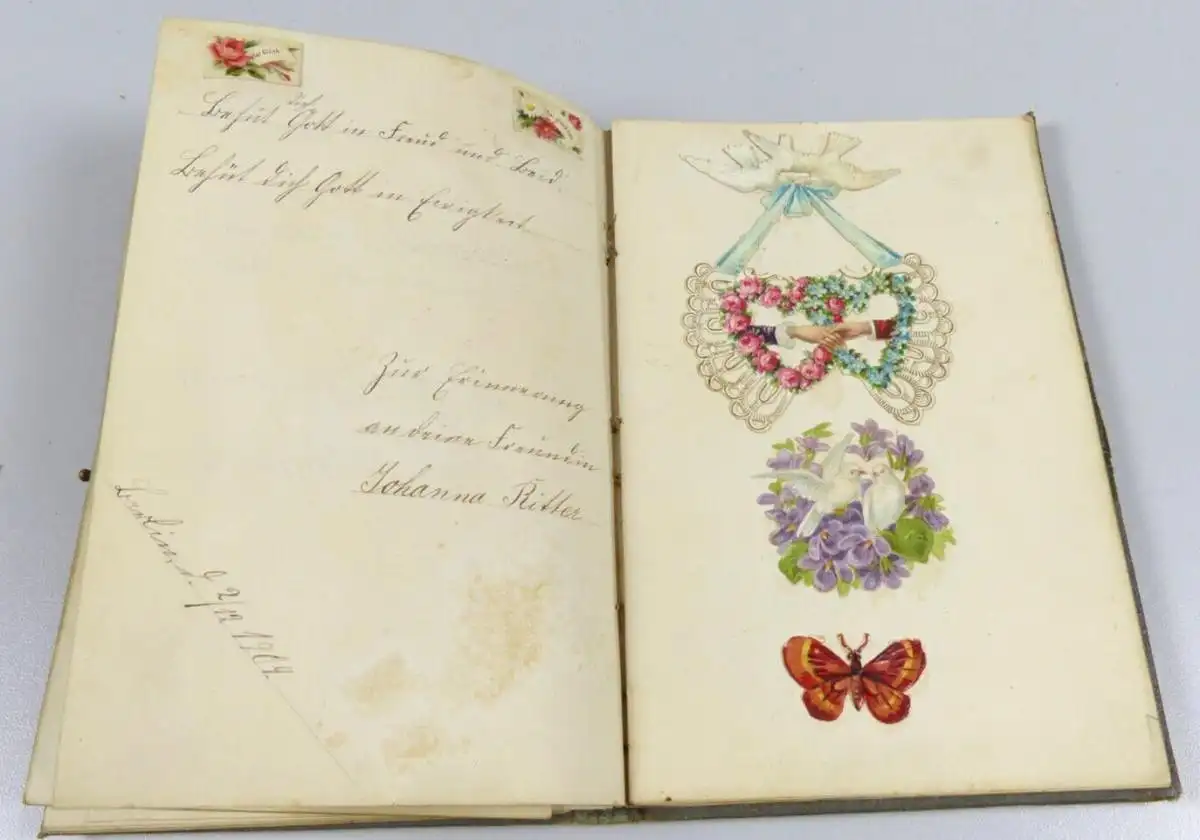 Behüt dich Gott in Freud und Leid.
Behüt dich Gott in Ewigkeit
Zur Erinnerung
an deine Freundin
Johanna Ritter
Berlin, d. 2/12